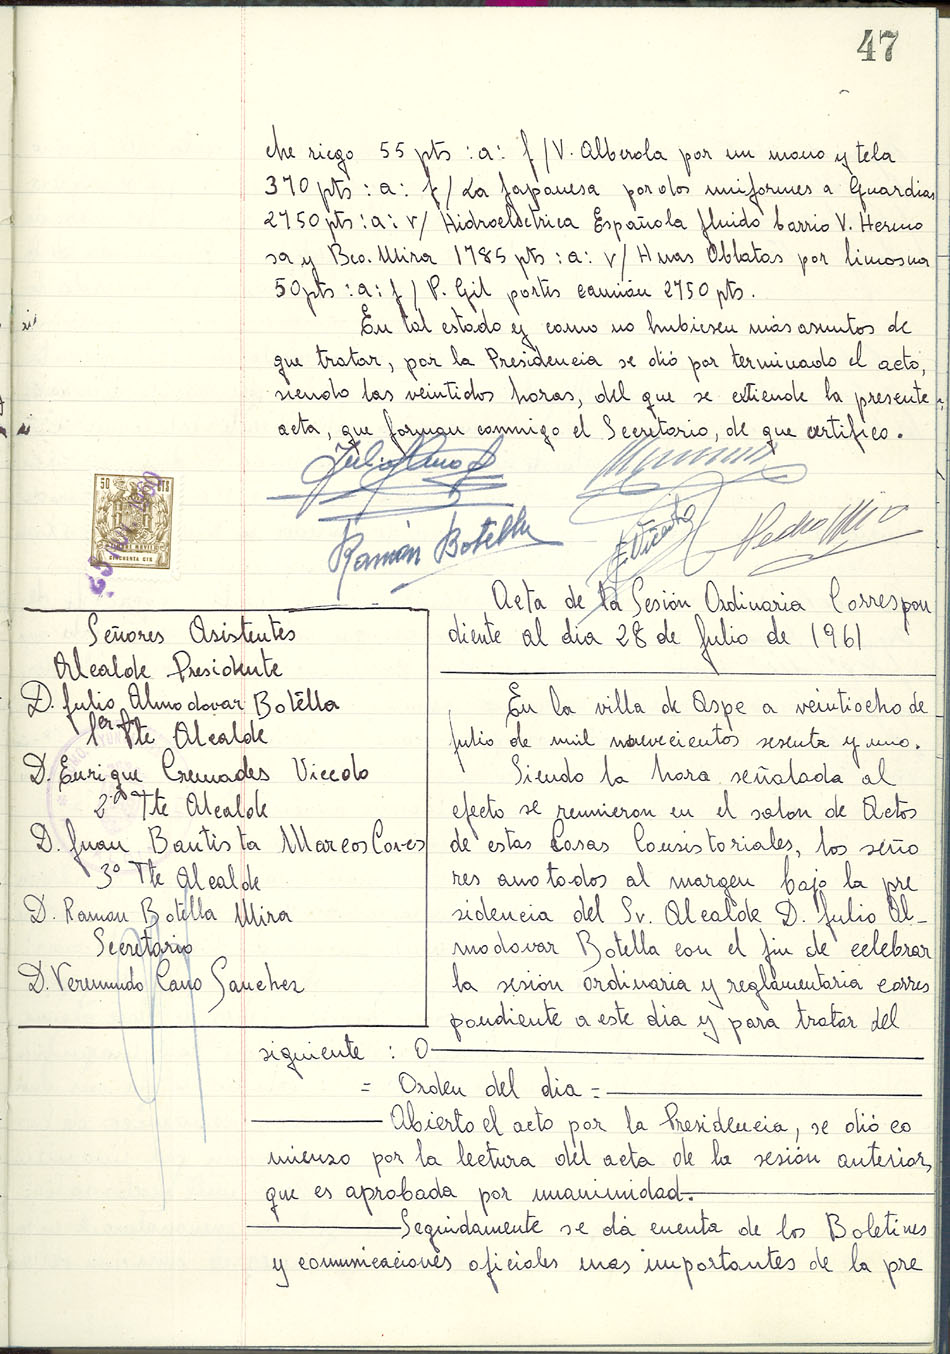 47
che riego 55 pts :a: f/V. Alberola por un mono y tela
370 pts :a: f/ La Japonesa por dos uniformes a Guardias
2750 pts :a: v/ Hidroeléctrica Española fluido barrio V. Hermo
sa y Bco. Mira 1785 pts :a: v/ Hnas Oblatas por limosna
50 pts :a: f/ P. Gil portes camión 2750 pts.
En tal estado y como no hubiesen más asuntos de
que tratar, por la Presidencia se dió por terminado el acto,
siendo las veintidos horas, del que se extiende la presente
acta, que forman conmigo el Secretario, de que certifico.
Ramón Botella
E. Vicedo
Pedro Mira
50 CTS
CINCUENTA CTS
Acta de la Sesión Ordinaria Correspon
diente al dia 28 de Julio de 1961
Señores Asistentes
Alcalde Presidente
D. Julio Almodovar Botélla
1er Tte Alcalde
D. Enrique Cremades Vicedo
2º Tte Alcalde
D. Juan Bautista Marcos Cores
3º Tte Alcalde
D. Ramon Botella Mira
Secretario
D. Veremundo Cano Sanchez
En la villa de Aspe a veintiocho de
julio de mil novecientos sesenta y uno.
Siendo la hora señalada al
efecto se reunieron en el salon de Actos
de estas Casas Consistoriales, los seño
res anotodos al margen bajo la pre
sidencia del Sr. Alcalde D. Julio Al-
modovar Botella con el fin de celebrar
la sesión ordinaria y reglamentaria corres
pondiente a este dia y para tratar del
siguiente : O
= Orden del dia =
Abierto el acto por la Presidencia, se dió co
mienzo por la lectura del acta de la sesión anterior,
que es aprobada por unanimidad.
Seguidamente se dá cuenta de los Boletines
y comunicaciones oficiales mas importantes de la pre